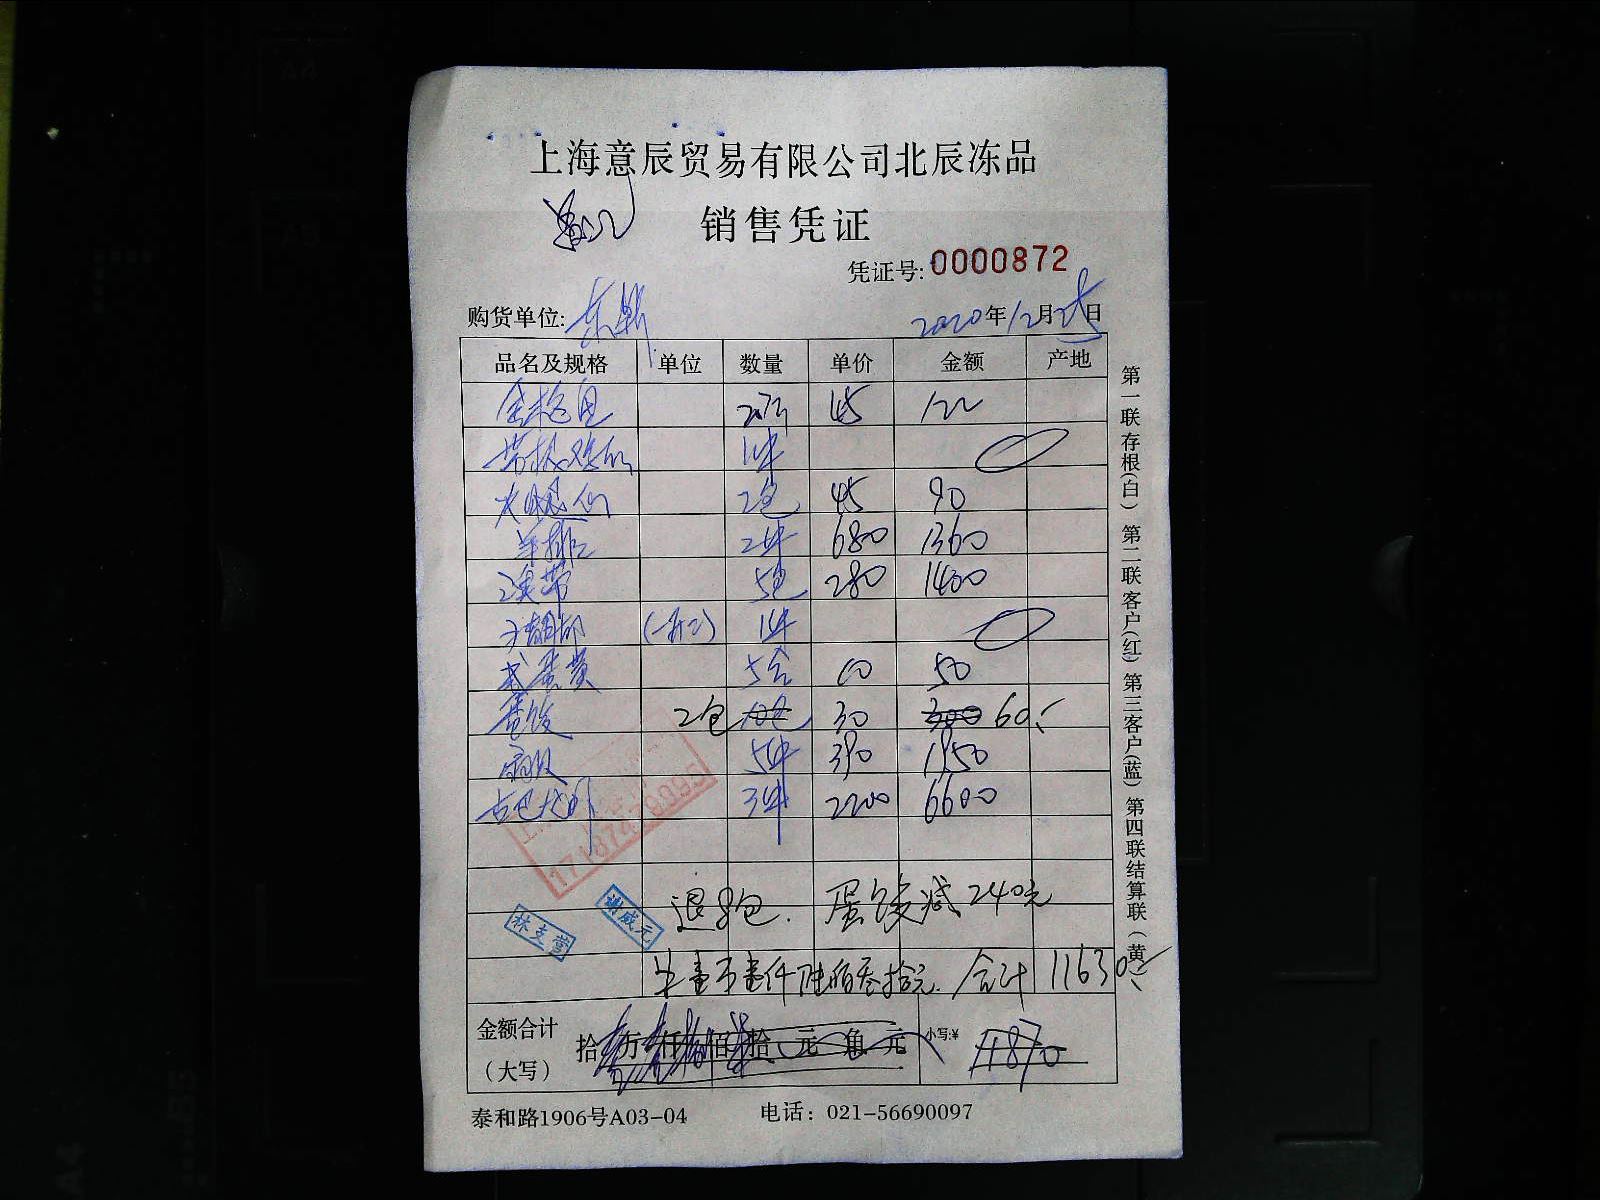 上海意辰贸易有限公司北辰冻品
销售凭证
凭证号:0000872
购货单位:
2020年12月25日
品名及规格 单位 数量 单价 金额 产地
金枪鱼 45 122
1件
2包 45 90
羊排 2件 680 1360
5包 280 1400
1件
5合 10 50
蛋饺 2包 10包 30 300 60.
5件 390 1950
3件 2200 6600
退8包. 蛋饺减240元
壹万壹仟陆佰叁拾元 合计 11630
金额合计
（大写） 拾 万 仟 佰 拾 元 角 元 小写:¥ 11870
泰和路1906号A03-04 电话：021-56690097
第一联存根(白) 第二联客户(红) 第三客户(蓝) 第四联结算联(黄)
谢威元
林支营